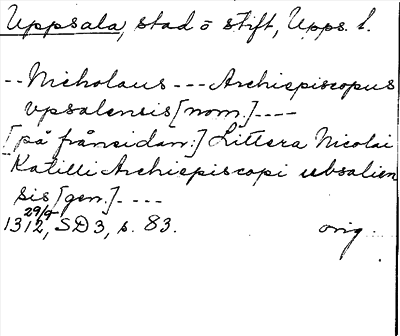 Uppsala, stad o stift, Upps. l.
-- Nicholaus --- Archiepiscopus
vpsalensis [nom.] ----
[på frånsidan:] Littera Nicolai
Katilli Archiepiscopi ubsalien
sis [gen.] ----
1312 29/9, SD3, s. 83. orig.